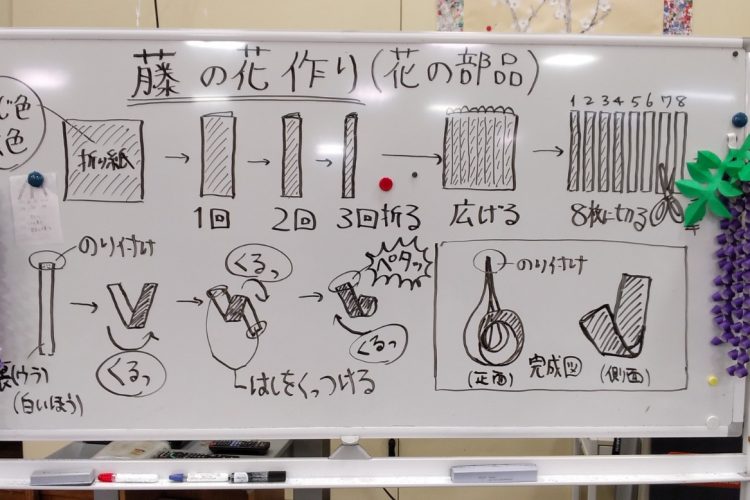 藤の花作り(花の部品)
じ色
色
折り紙
1 2 3 4 5 6 7 8
1回
2回
3回折る
広げる
8枚に切る
のり付け
くるっ
ペタッ
のり付け
くるっ
くるっ
はしをくっつける
(ウラ)
(白いほう)
(正面)
完成図
(側面)